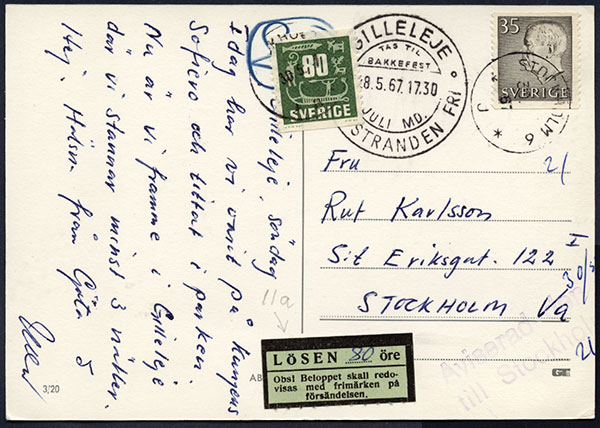 Gilleleje, söndag
I dag har vi varit på kungens
Sofiero och tittat i parken.
Nu är vi framme i Gilleleje
där vi stannar minst 3 nätter.
Hej, Hälsn. från Göta o
3/20
80
SVERIGE
GILLELEJE
TAG TIL
BAKKEFEST
28.5.67.17.30
JULI MD.
STRANDEN FRI
35
SVERIGE
STOCKHOLM 6
Fru
Rut Karlsson
S:t Eriksgat. 122 I
STOCKHOLM Va
30/5
21
21
11a
LÖSEN 80 öre
Obs! Beloppet skall redo-
visas med frimärken på
försändelsen.
Aviserad
till Stockhol